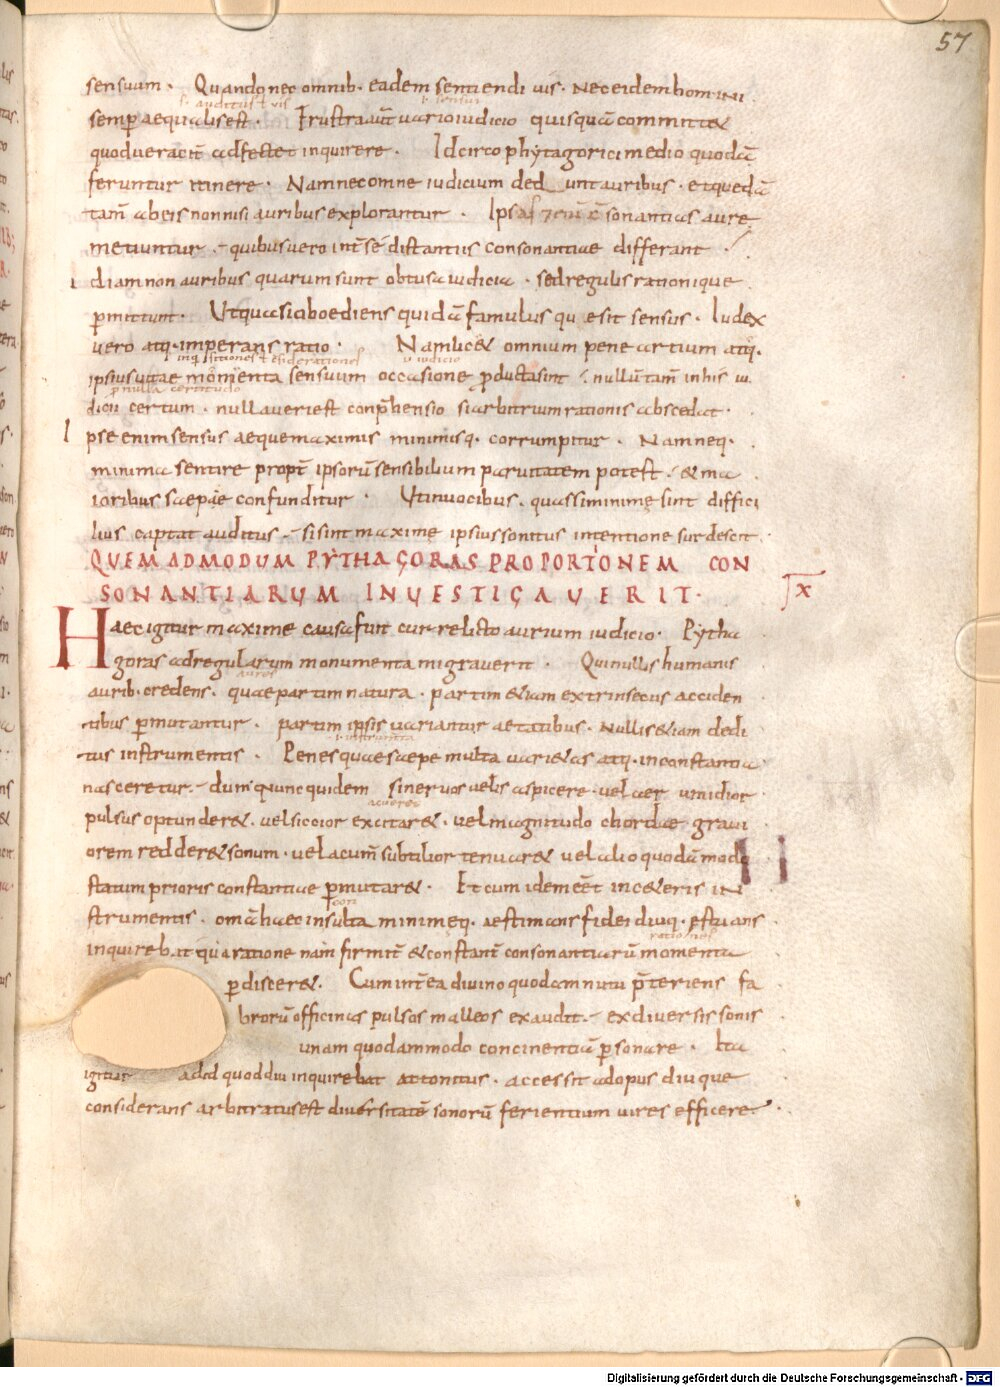 57
sensuum · Quando nec omnib· eadem sentiendi uis · Nec eidem homini
s· auditus ł uis ł sensui
semp̄ aequalis est · Frustra aut̄ uario iudicio quisquā committ&
quod ueracit̄ adfectet inquirere · Idcirco phytagorici medio quodā
feruntur itinere · Nam nec omne iudicium ded unt auribus · et quedā
tam̄ ab eis non nisi auribus explorantur · Ipsas sonantias aure
metiuntur · quibus uero int̄ sē distantiis consonantiae differant
I diam non auribus quarum sunt obtusa iudicia · sed regulis rationique
p̄mittunt · Ut quasi oboediens quidā famulus qu esit sensus · Iudex
uero atq· imperans ratio · Nam lic& omnium pene artium atq·
ipsius uitae momenta sensuum occasione p̄ducta sint · nullū tam̄ in his iu
p̄ nulla certitudo
dicii certum · nulla ueri est conp̄hensio si arbitrium rationis abscedat ·
I pse enim sensus aeque maximis minimisq· corrumpitur · Nam neq·
minima sentire propt̄ ipsorū sensibilium paruitatem potest · & ma
ioribus saepae confunditur · Ut in uocibus · quas si minimę sint diffici
lius captat auditus · si sint maximę ipsius sonitus intentione surdescit ·
QUEMADMODUM PYTHAGORAS PROPORTIONEM CON
SONANTIARUM INUESTIGAUERIT·
x
Haec igitur maxime causa fuit cur relicto aurium iudicio · Pytha
goras ad regularum monumenta migrauerit · Qui nullis humanis
aures
aurib· credens · quae partim natura · partim &iam extrinsecus acciden
tibus p̄mutantur · partim ipsis uariantur aetatibus · Nullis &iam dedi
tus instrumentis · Penes quae saepe multa uari&as atq· inconstantia
nasceretur · dum nunc quidem si neruos uelis aspicere · uel aer umidior
acueret
pulsus optunder& · uel siccior excitar& · uel magnitudo chordae graui
orem redder& sonum · uel acum̄ subtilior tenuar& uel alio quodā modo
statum prioris constantiae p̄mutar& · Et cum idem eēt in c&eris in
con
strumentis · om̄a haec insulta minimeq· aestimans fidei diuq· estuans
rationes
inquirebat qua ratione nam firmit̄ & constant̄ consonantiarū momenta
p̄discer& · Cum int̄ea diuino quodam nutu p̄teriens fa
brorū officinas pulsos malleos exaudit · ex diuersis sonis
unam quodammodo concinentiā p̄sonare · Ita
igitur ad id quod diu inquirebat attonitus · accessit ad opus diuque
considerans arbitratus est diuersitatē sonorū ferientium uires efficere ·
Digitalisierung gefördert durch die Deutsche Forschungsgemeinschaft - DFG